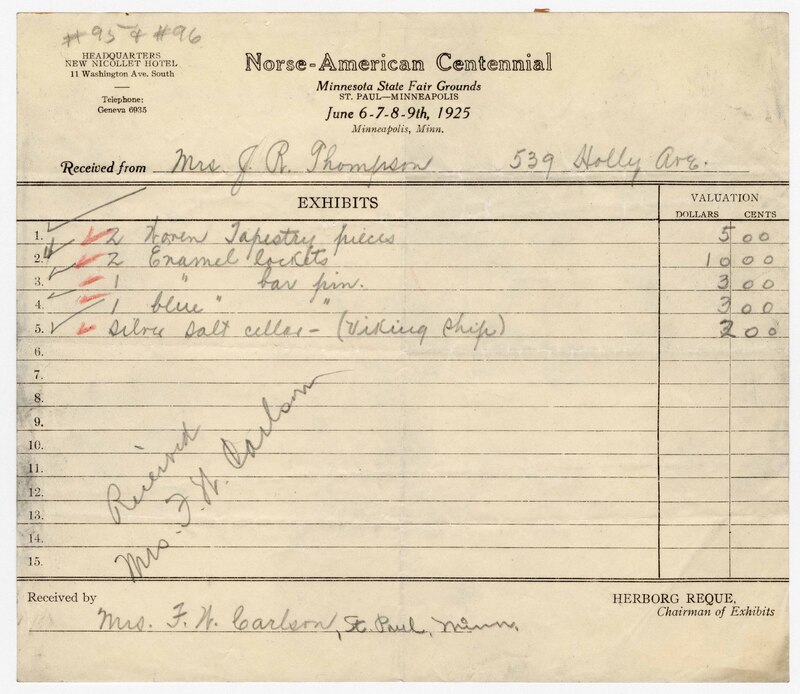 #95 & #96
HEADQUARTERS
NEW NICOLLET HOTEL
11 Washington Ave. South
Telephone:
Geneva 6935
Norse-American Centennial
Minnesota State Fair Grounds
ST. PAUL—MINNEAPOLIS
June 6-7-8-9th, 1925
Minneapolis, Minn.
Received from Mrs. J. R. Thompson 539 Holly Ave.
EXHIBITS VALUATION
DOLLARS CENTS
1. 2 Woven Tapestry pieces 5 00
2. 2 Enamel lockets 10 00
3. 1 " bar pin. 3 00
4. 1 blue " " 3 00
5. Silver Salt cellar - (Viking Ship) 2 00
6.
7.
8.
9.
10.
11.
12.
13.
14.
15.
Received
Mrs. F. W. Carlson
Received by
Mrs. F. W. Carlson, St. Paul, Minn.
HERBORG REQUE,
Chairman of Exhibits